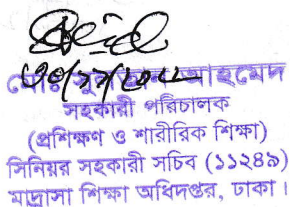 আহমেদ
সহকারী পরিচালক
(প্রশিক্ষণ ও শারীরিক শিক্ষা)
সিনিয়র সহকারী সচিব (১১২৪৯)
মাদ্রাসা শিক্ষা অধিদপ্তর, ঢাকা।